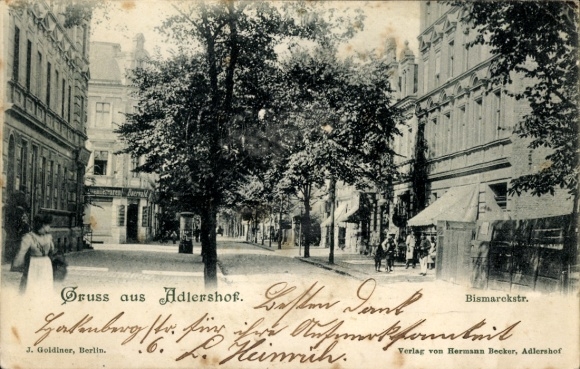 Gruss aus Adlershof.
Bismarckstr.
Besten Dank
für ihre Aufmerksamkeit
6. L. Heinrich
J. Goldiner, Berlin.
Verlag von Hermann Becker, Adlershof